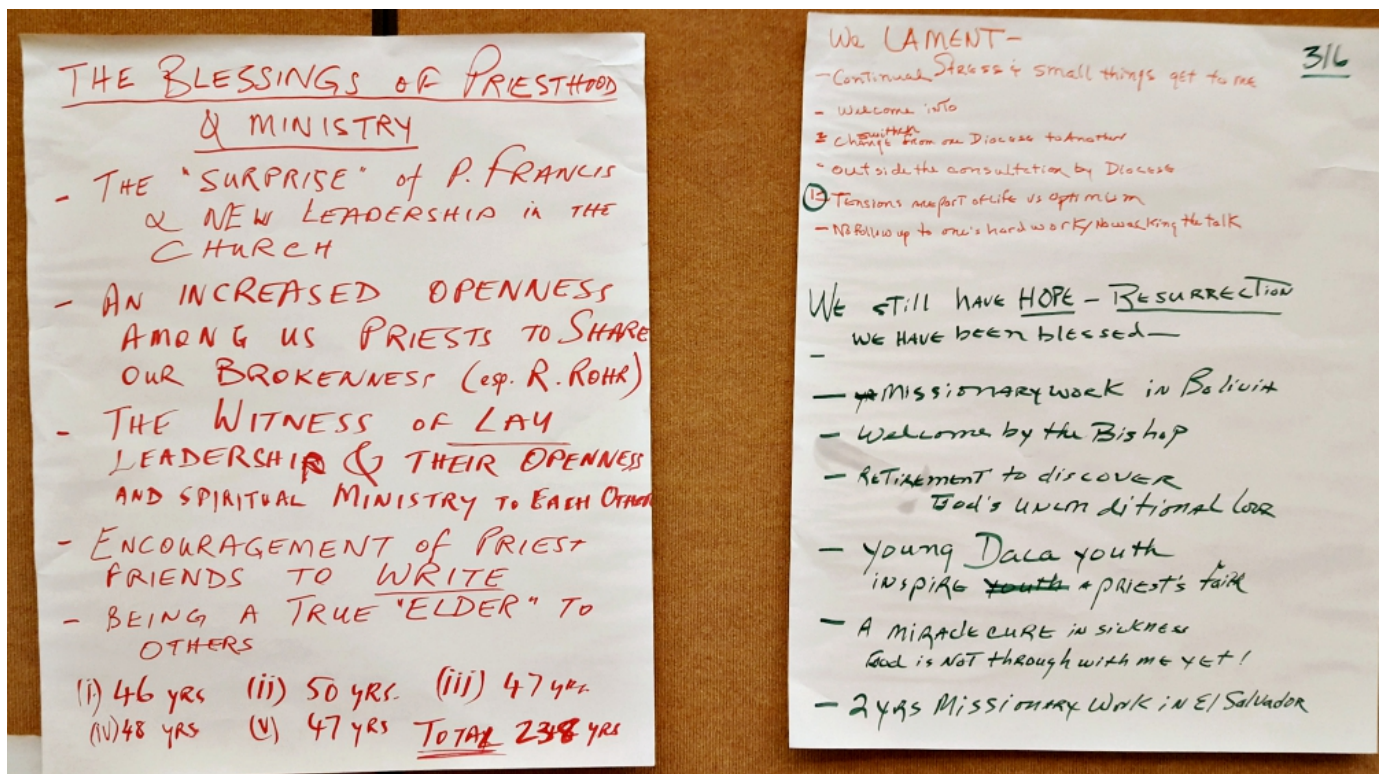 THE BLESSINGS OF PRIESTHOOD
& MINISTRY
- THE "SURPRISE" of P. FRANCIS
& NEW LEADERSHIP in THE
CHURCH
- AN INCREASED OPENNESS
AMONG US PRIESTS TO SHARE
OUR BROKENNESS (esp. R. ROHR)
- THE WITNESS OF LAY
LEADERSHIP & THEIR OPENNESS
AND SPIRITUAL MINISTRY TO EACH OTHER
- ENCOURAGEMENT OF PRIEST
FRIENDS TO WRITE
- BEING A TRUE "ELDER" TO
OTHERS
(i) 46 YRS (ii) 50 YRS. (iii) 47 YRS.
(iv) 48 YRS (v) 47 YRS TOTAL 238 YRS
We LAMENT-
316
- Continual Stress & small things get to me
- Welcome into
Change from one Diocese to Another
- outside the consultation by Diocese
- Tensions are part of Life vs Optimism
- No follow up to one's hard work/No walking the talk
We still have HOPE - RESURRECTION
we have been blessed-
-
- Missionary work in Bolivia
- Welcome by the Bishop
- Retirement to discover
God's unconditional love
- young Daca youth
inspire youth a priest's faith
- A miracle cure in sickness
God is not through with me yet!
- 2 yrs Missionary Work in El Salvador